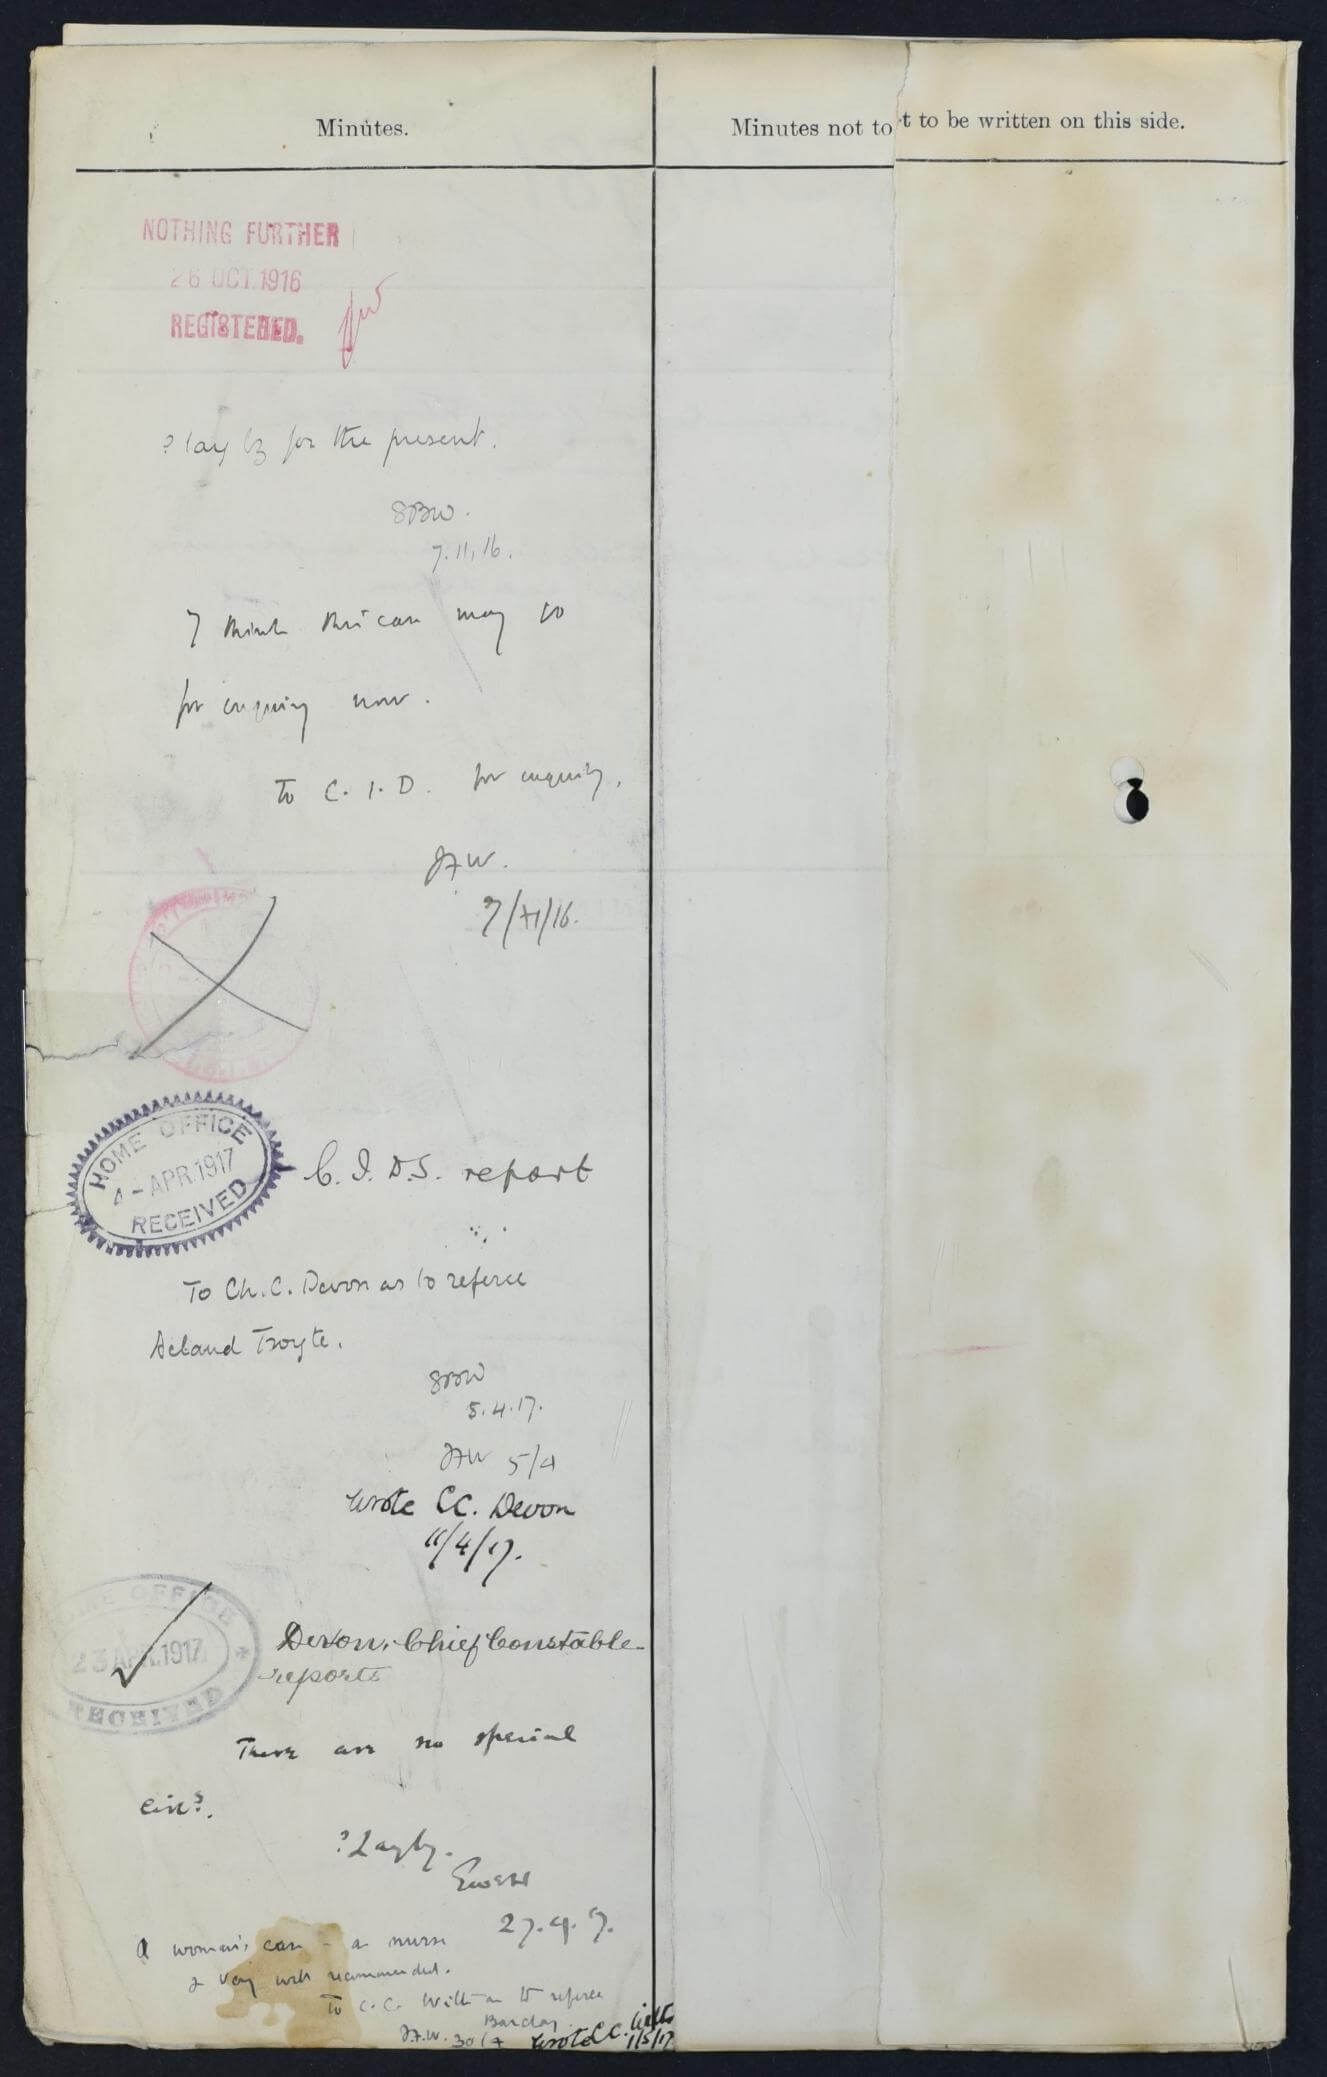 Minutes.
Minutes not to t to be written on this side.
NOTHING FURTHER
26 OCT. 1916
REGISTERED.
? lay by for the present.
SBW.
7.11.16.
I think this case may go
for inquiry now.
To C.I.D. for inquiry.
JFW.
7/11/16.
HOME OFFICE
4 - APR. 1917
RECEIVED
C.I.D.S. report
To Ch. C. Devon as to referee
Acland Troyte.
SBW
5.4.17.
JFW 5/4
Wrote CC. Devon
11/4/17.
HOME OFFICE
23 APR. 1917
RECEIVED
Devon, Chief Constable
reports
There are no special
circs.
? Lay by.
27.4.17.
A woman's case - a nurse
& very well recommended.
To C.C. Wilts as to referee
Barclay.
JFW. 30/4
Wrote CC. Wilts
1/5/17